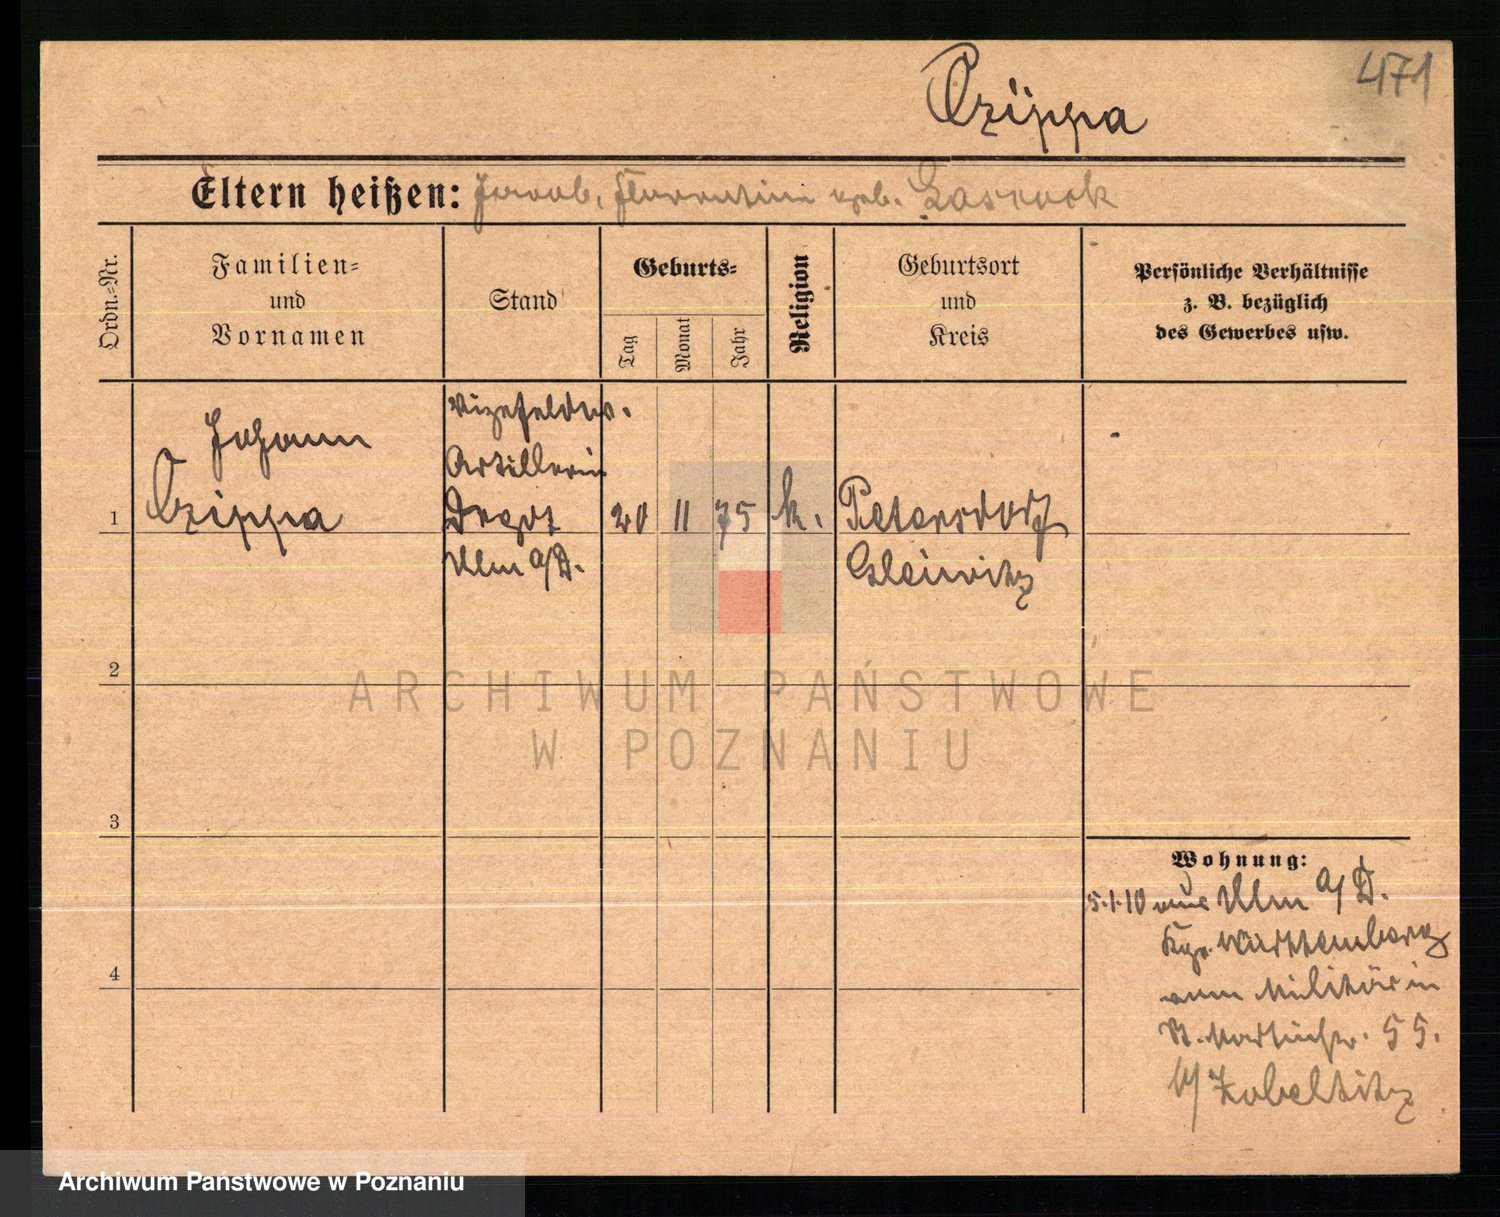 471
Czippa
Eltern heißen: Jacob, Florentine geb. Lasrock
Ordn.-Nr.
Familien-
und
Vornamen
Stand
Geburts-
Tag
Monat
Jahr
Religion
Geburtsort
und
Kreis
Persönliche Verhältnisse
z. B. bezüglich
des Gewerbes usw.
1
Johann
Czippa
Vizefeldw.
Artillerie
Depot
Ulm a/D.
20
11
75
k.
Petersdorf
Gleiwitz
2
3
4
Wohnung:
5.1.10 aus Ulm a/D.
Kgr. Württemberg
vom Militär in
St. Martinstr. 55.
b/ Zobeltitz
ARCHIWUM PAŃSTWOWE
W POZNANIU
Archiwum Państwowe w Poznaniu